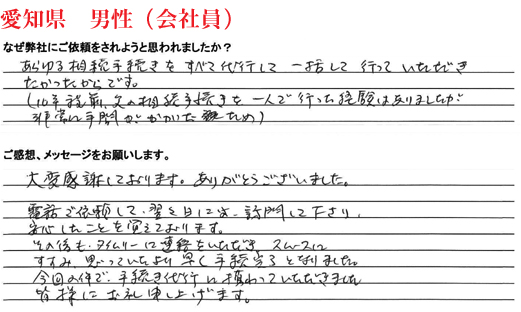 愛知県　男性（会社員）
なぜ弊社にご依頼をされようと思われましたか？
あらゆる相続手続きをすべて代行して一括して行っていただき
たかったからです。
（10年程前、父の相続手続きを一人で行った経験はありましたが
非常に手間がかかった為ため）
ご感想、メッセージをお願いします。
大変感謝しております。ありがとうございました。
電話で依頼して、翌々日には、訪問して下さり、
安心したことを覚えております。
その後も、タイムリーに連絡をいただき、スムースに
すすみ、思っていたより早く手続完了となりました。
今回の件で、手続き代行に携わっていただきました
皆様にお礼申し上げます。